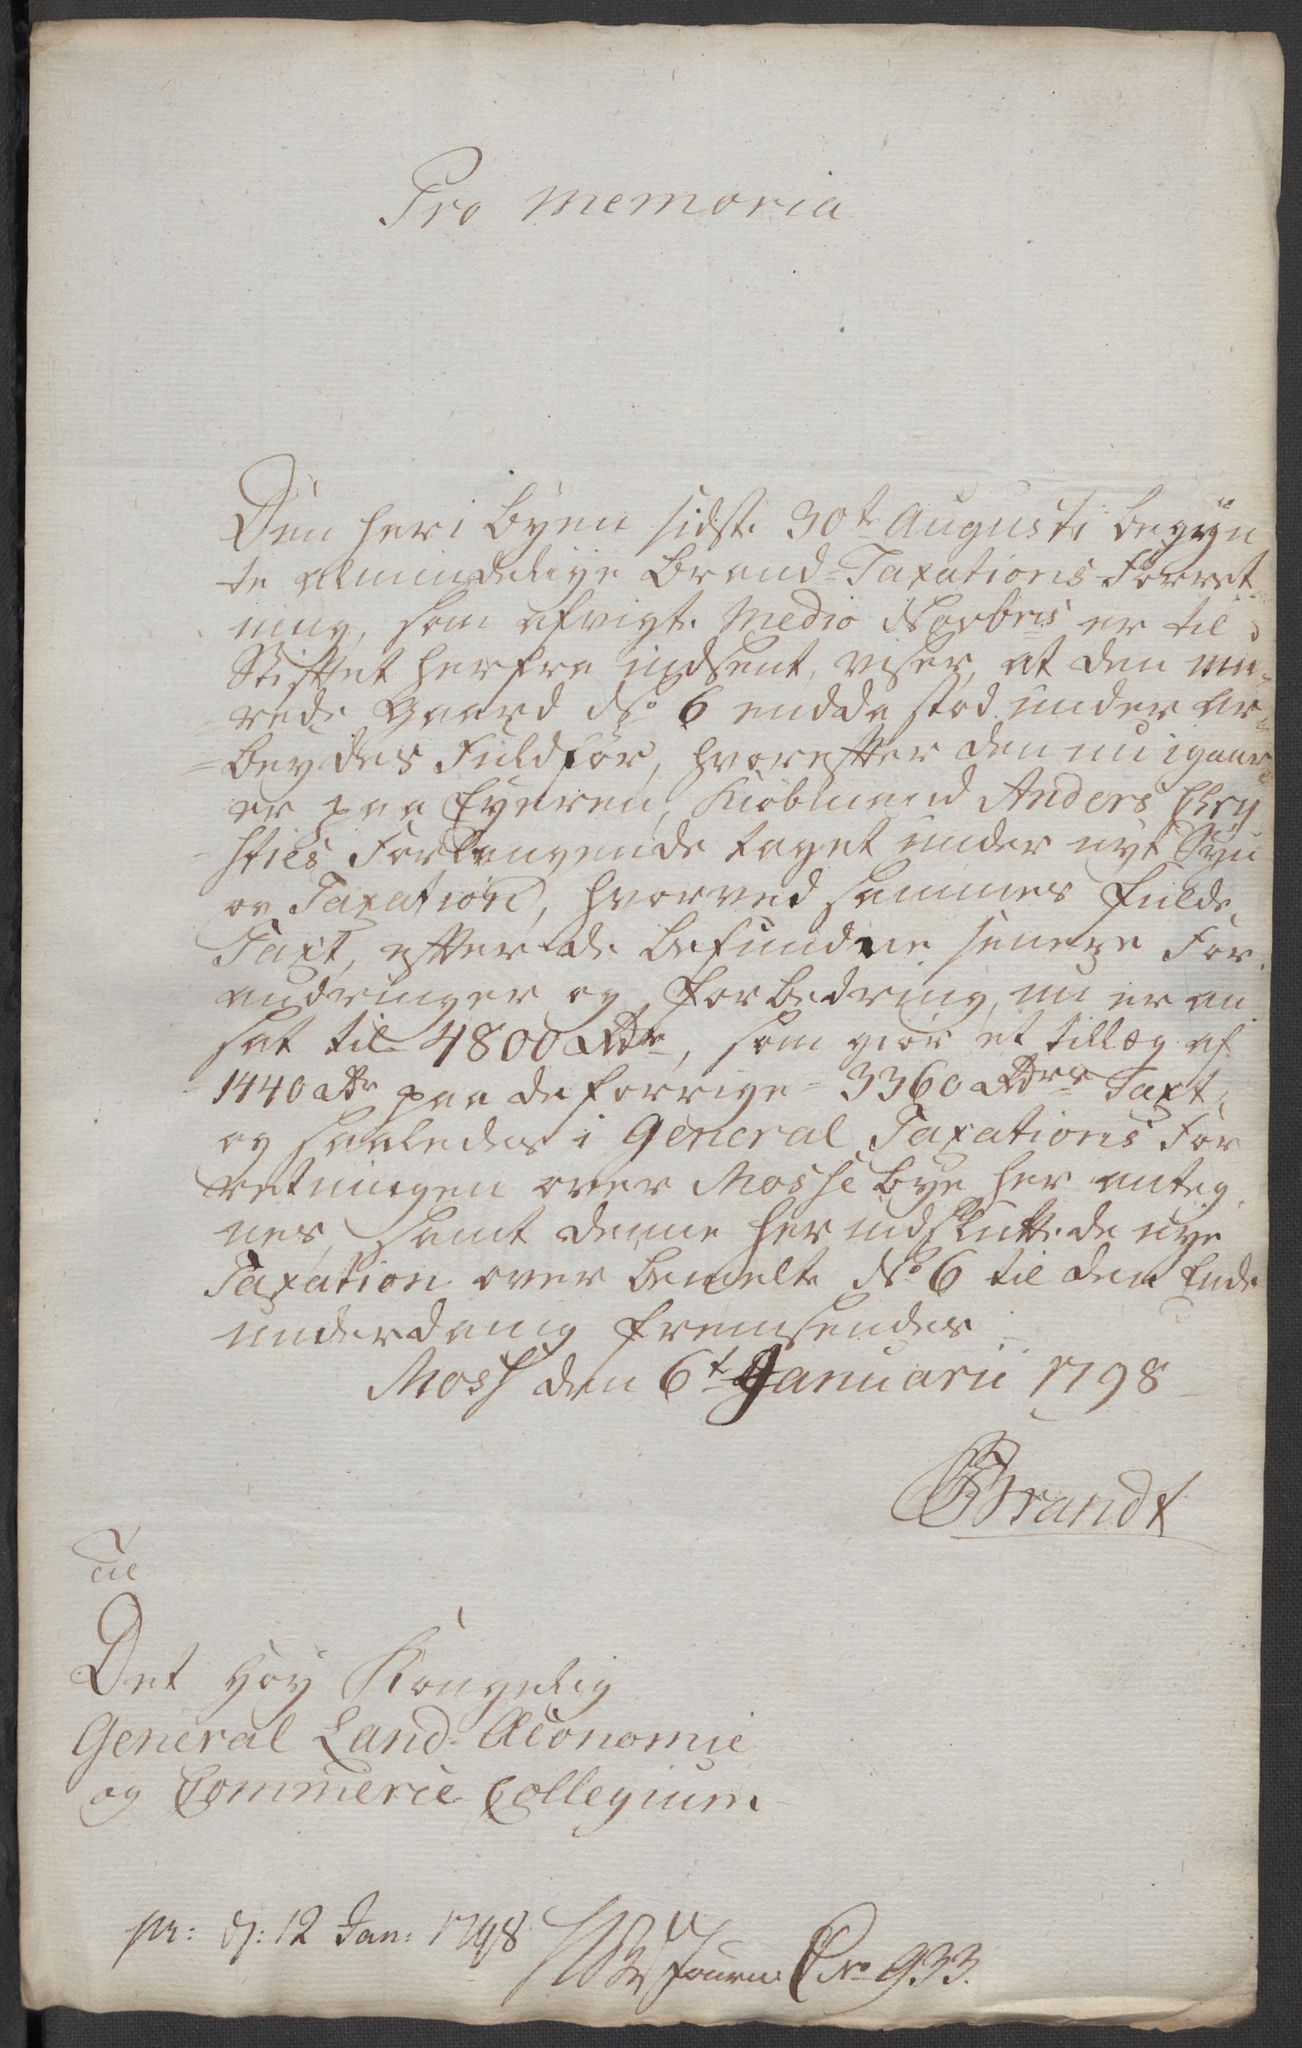 Pro Memoria
Den her i Byen sidst. 30t Augusti begyn
te almindelige Brand-Taxations Forret-
ning, som afvigte Medio Novbris er til
Stiftet herfra indsent, viser, at den mu-
rede Gaard No 6 endda stod under Ar-
beydes Fuldför, hvorefter den nu igaar
er paa Eyeren, Kiöbmand Anders Chry
sties Forlangende taget under nyt Syn
og Taxation, hvorved sammes fulde
Taxt, efter de befundne senere For-
andringer og Forbedring, nu er an
sat til 4800 Rdr, som giör et tillæg af
1440 Rdr paa de forrige 3360 Rdrs Taxt,
og saaledes i General Taxations For
retningen over Mosse Bye her anteg
nes, samt denne her indsluttede nye
Taxation over bemelte No 6 til den Ende
underdanig fremsendes
Moss den 6t Januarii 1798
Brandt
Til
Det Höy Kongelig
General Land-Œconomie
og Commerce Collegium
pr: d: 12 Jan: 1798
Journ: No 933.